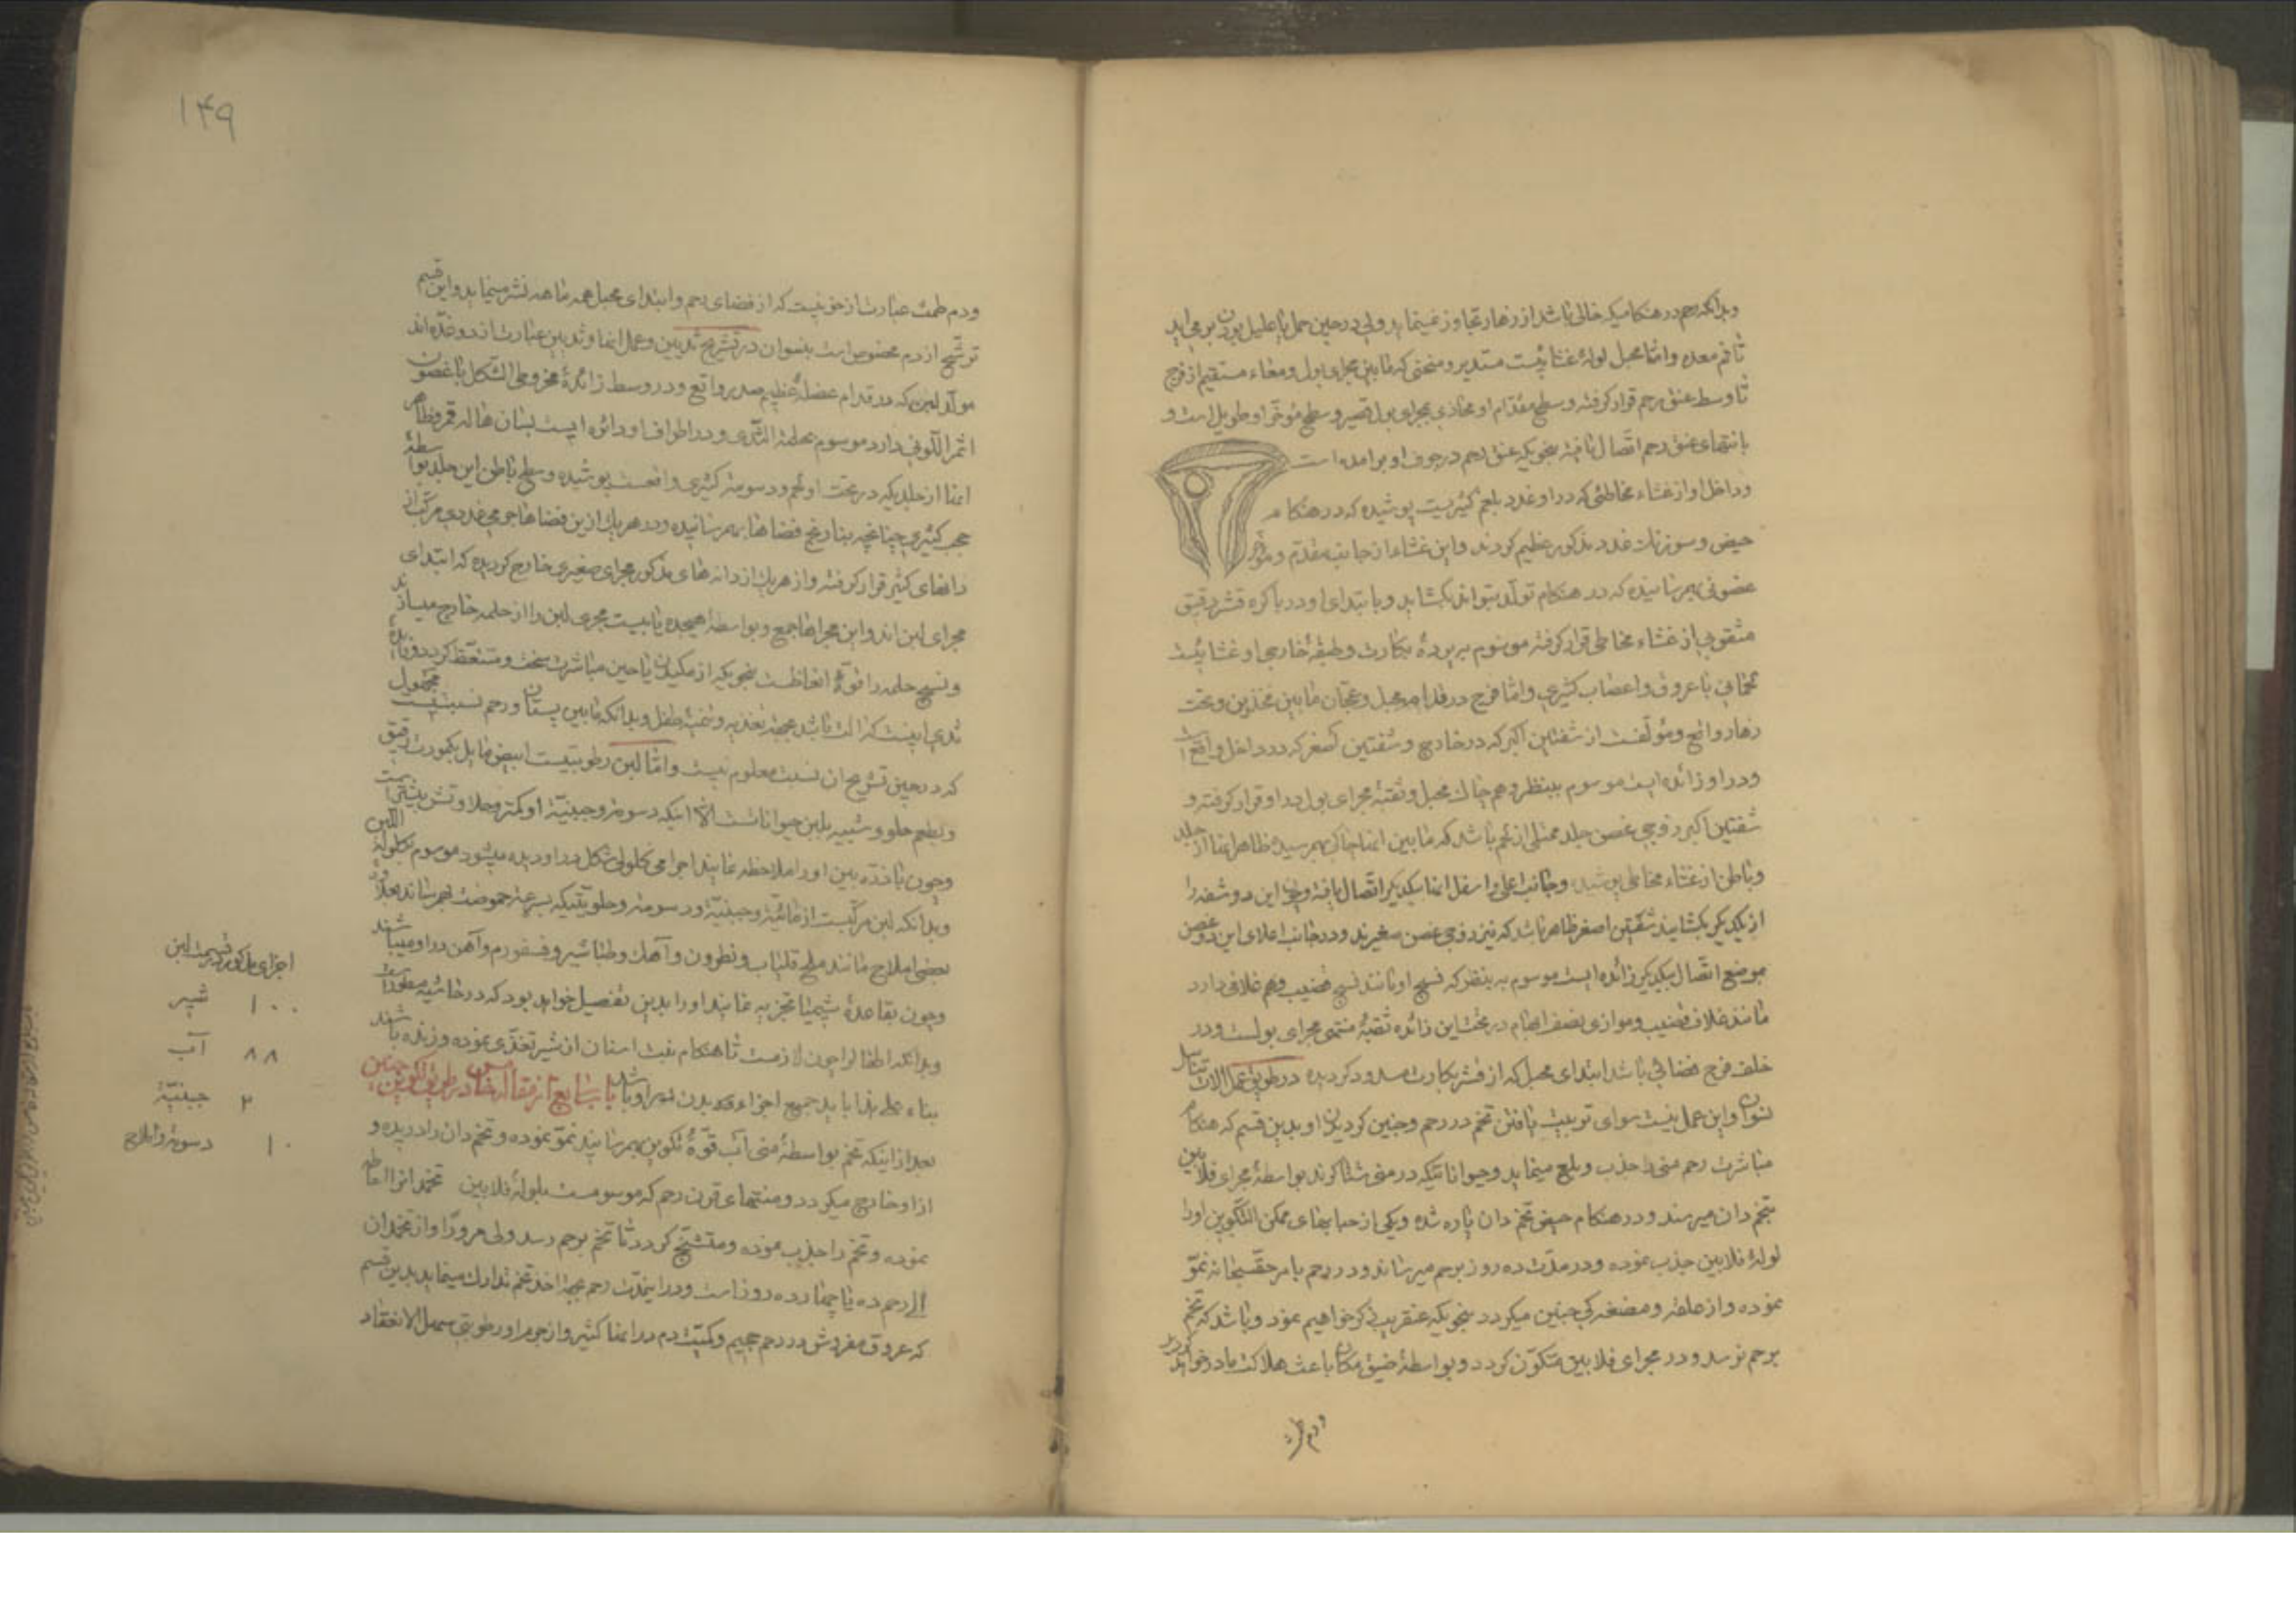 وبدانکه رحم در هنکامیکه خالی باشد از زهار تجاوز نمینماید ولی در حین حمل یا علیل بودن بر می‌اید
تا فم معده واما محبل لولهٔ غشائیست مستدیر و منحنی که مابین مجرای بول ومعاء مستقیم از فرج
تا وسط عنق رحم قرار کرفته و سطح مقدّام او محاذی مجرای بول قصیر و سطح مؤخّر او طویل است و
بانتهای عنق رحم اتّصال یافته بنحویکه عنق رحم در جوف او برامده است
وداخل او از غشاء مخاطئی که در او غدد بلغمی کثیریست پوشیده که در هنکام
حیض و سوزنك غدد مذکور عظیم کردند و این غشاء از جانب مقدّم و مؤخّر
غضونی بهم رسانیده که در هنکام تولّد بتواند بکشاید و با بتدای او در باکره قشر رقیق
مثقوبی از غشاء مخاطی قرار کرفته موسوم به پردهٔ بکارت وطبقهٔ خارجی او غشائیست
لحمانی با عروق واعصاب کثیری واما فرج در قدام محبل وعجان مابین فخذین وتحت
زهار واقع ومؤلّفست از شفتین اکبر که در خارج و شفتین اصغر که در داخل واقع است
ودر او زائده ایست موسوم ببنظر وهم چاك محبل وثقبهٔ مجرای بول در او قرار کرفته و
شفتین اکبر زوجی غصن جلد ممتلی از لحم باشد که مابین انها چاکی بهم رسیده ظاهر انها از جلد
وباطن از غشاء مخاطی پوشیده وجانب اعلی واسفل انها بیکدیکر اتّصال یافته وچون این دو شفه را
از یکدیکر بکشایند شفتین اصغر ظاهر باشد که نیز زوجی غصن صغیرند ودر جانب اعلای این دو غصن
موضع اتّصال بیکدیکر زائده ایست موسوم به بنظر که نسج او مانند نسج قضیب وهم غلافی دارد
مانند غلاف قضیب وموازی نصف ابهام در تحت این زائده ثقبهٔ منتهی مجرای بولست ودر
خلف فرج فضائی باشد ابتدای محبل که از قشر بکارت مسدود کردیده در طریق عمل الات تناسل
نسوان واین عمل نیست سوای تربیت یافتن تخم در رحم وجنین کردیدن او بدین قسم که هنکام
مباشرت رحم منی را جذب وبلع مینماید وحیواناتیکه در منی شناکرند بواسطهٔ مجرای فلاپین
بتخم دان میرسند ودر هنکام حیض تخم دان پاره شده ویکی از حبابهای ممکن التکّوین اورا
لولهٔ فلاپین جذب نموده ودر مدّت ده روز برحم میرساند ودر رحم بامر حقّ سبحانه نموّ
نموده واز علقه ومضغه کی جنین میکردد بنحویکه عنقریب ذکر خواهیم نمود وباشد که تخم
برحم نرسد ودر مجرای فلاپین متکوّن کردد وبواسطهٔ ضیق مکان باعث هلاکت مادر خواهد کردید
ودم طمث
۱۴۹
ودم طمث عبارت از خونیست که از فضای رحم وابتدای محبل همه ماهه نشر مینماید واین قسم
ترشّح از دم مخصوص است بنسوان در تشریح ثدیین وعمل انها وثدیین عبارت از دو غدّه اند
مولّد لبن که در قدام عضلهٔ عظیم صدر واقع ودر وسط زائدهٔ مخروطی الشّکل با غضون
اثمر اللّونی دارد موسوم بحلمة الثّدی ودر اطراف او دائره ایست بسان هاله قمر وظاهر
انها از جلدیکه در تحت او لحم ودسومت کثیری واقعست پوشیده وسطح باطن این جلد بواسطهٔ
حجب کثیری چنانچه بنارنج فضاها بهم رسانیده ودر هریك ازین فضاها جرمی غددی مرکّب از
دانهای کثیر قرار کرفته واز هریك از دانه های مذکور مجرای صغیری خارج کردیده که ابتدای
مجرای لبن اند واین مجراها جمع وبواسطهٔ هیجده یا بیست مجری لبن را از حلمه خارج میسازند
ونسج حلمه را قوّهٔ انعاظست بنحویکه از مکیدن یا حین مباشرت سخت ومتنعّظ کردد وفایدهٔ
ثدی اینست که الت باشد بجهت تغذیه وتنمیهٔ طفل وبدانکه مابین پستان ورحم نسبتیست مجهول
که در حین تشریح ان نسبت معلوم نیست وامّا لبن رطوبتیست ابیض مایل بکبودت رقیق
وبطعم حلو وشبیه بلبن حیوانات الّا اینکه دسومت وجبنیّة او کمتر وحلاوتش بیشتر است
وچون با ذرّه بین او را ملاحظه نمایند اجرامی کلولی شکل در او دیده میشود موسوم بکلولهٔ اللّبن
وبدانکه لبن مرکّبست از مائیّة وجبنیّة ودسومت وحلویتیکه بسرعت حموضت بهم رساند بعلاوه
بعضی املاح مانند ملح قلیاب ونطرون وآهك وطباشیر وفسفورم وآهن در او میباشند
وچون بقاعدهٔ شیمیا تجزیه نمایند اورا بدین تفصیل خواهد بود که در حاشیه مسطور است
وبدانکه اطفال را چون لازمست تا هنکام نبت اسنان از شیر تغذّی نموده وزنده باشند
بناء علی هذا باید جمیع اجزاء بدن در او باشد باب رابع از مقاله خامس در طریق تکوین جنین
بعد از اینکه تخم بواسطهٔ منی آب قوّهٔ تکوین بهم رسانید نموّ نموده وتخم دان را دریده و
از او خارج میکردد ومنتهای قرن رحم که موسومست بلولهٔ فلاپین تخمدانرا احاطه
نموده وتخم را جذب نموده ومتشنّج کردد تا تخم برحم رسد ولی مرورا و از تخمدان
الی رحم ده یا چهارده روز است ودر اینمدّت رحم بجهت اخذ تخم تدارك مینماید بدین قسم
که عروق مفروش در رحم جسیم وکمّیت دم در انها کثیر واز جرم او رطوبتی سهل الانعقاد
اجزای مذکور در قسمت لبن
۱۰۰ شیر
۸۸ آب
۲ جبنیّة
۱۰ دسومت واملاح